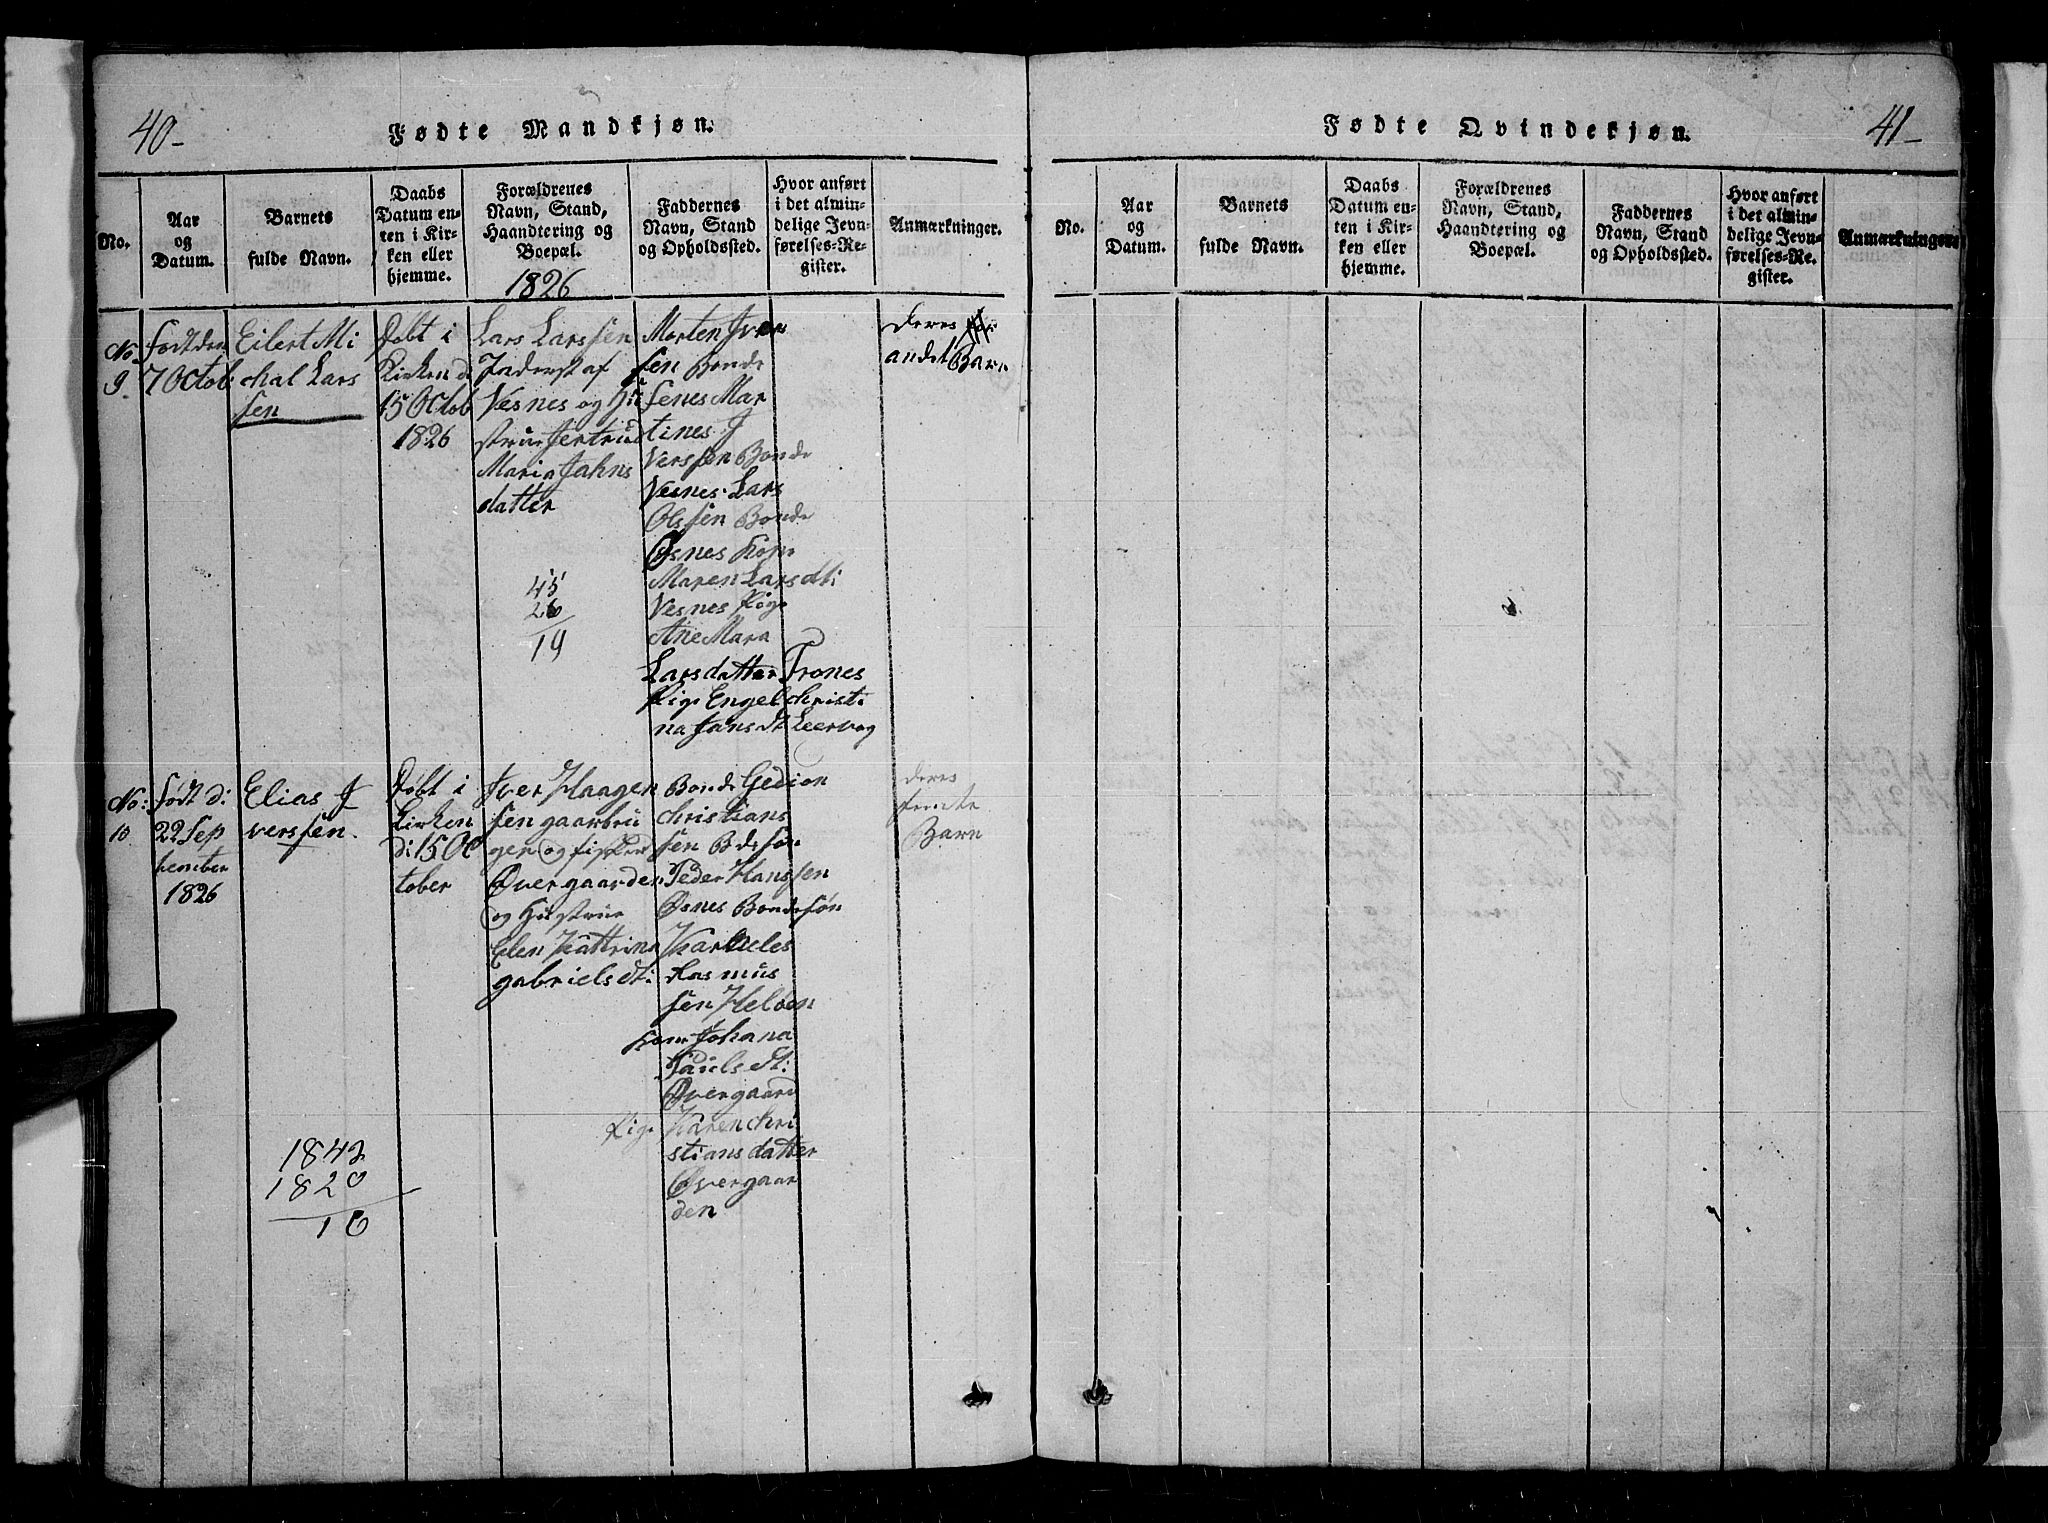 40-
Fødte Mandkjøn.
No.
Aar
og
Datum.
Barnets
fulde Navn.
Daabs
Datum en-
ten i Kir-
ken eller
hjemme.
Forældrenes
Navn, Stand,
Haandtering og
Boepæl.
1826
Faddernes
Navn, Stand
og Opholdssted.
Hvor anført
i det almin-
delige Jevn-
førelses-Re-
gister.
Anmærkninger.
No
9
Födt den
7 Octob
Eilert Mi
chal Lars
sen
Döbt i
Kirken d
15 Octob
1826
Lars Larssen
Inderst af
Vesnes og Hu
strue Jertrud
Maria Jahns
datter
45
26
19
Morten Iver
sen Bonde
Senes Mar
tines I
verssen Bonde
Vesnes. Lars
Olssen Bonde
Øsnes Kone
Maren Larsdt:
Vesnes Pige
Ane Mara
Larsdatter Trones
Pige Engel Christi
na Jansdt Leervog
deres
andet Barn
No:
10
Födt d:
22 Sep
tember
1826
Elias I
verssen.
Döbt i
Kirken
d: 15 Oc
tober
Iver Haagen
sen gaarbru
ger og fisker
Øvergaarden
og Hustrue
Elen Kattrina
gabrielsdt:
Bonde Gedion
Christians
sen Bdesøn
Peder Hanssen
Øsnes Bondesøn
Karneles
Rasmus
sen Heløen
Kone Johana
Paulsdt:
Øvergaard
Pige Karen Chri
stiansdatter
Øvergaar
den
deres
femte
Barn
1842
1826
16
41-
Fødte Qvindekjøn.
No.
Aar
og
Datum.
Barnets
fulde Navn.
Daabs
Datum en-
ten i Kir-
ken eller
hjemme.
Forældrenes
Navn, Stand,
Haandtering og
Boepæl.
Faddernes
Navn, Stand
og Opholdssted.
Hvor anført
i det almin-
delige Jevn-
førelses-Re-
gister.
Anmærkninger.